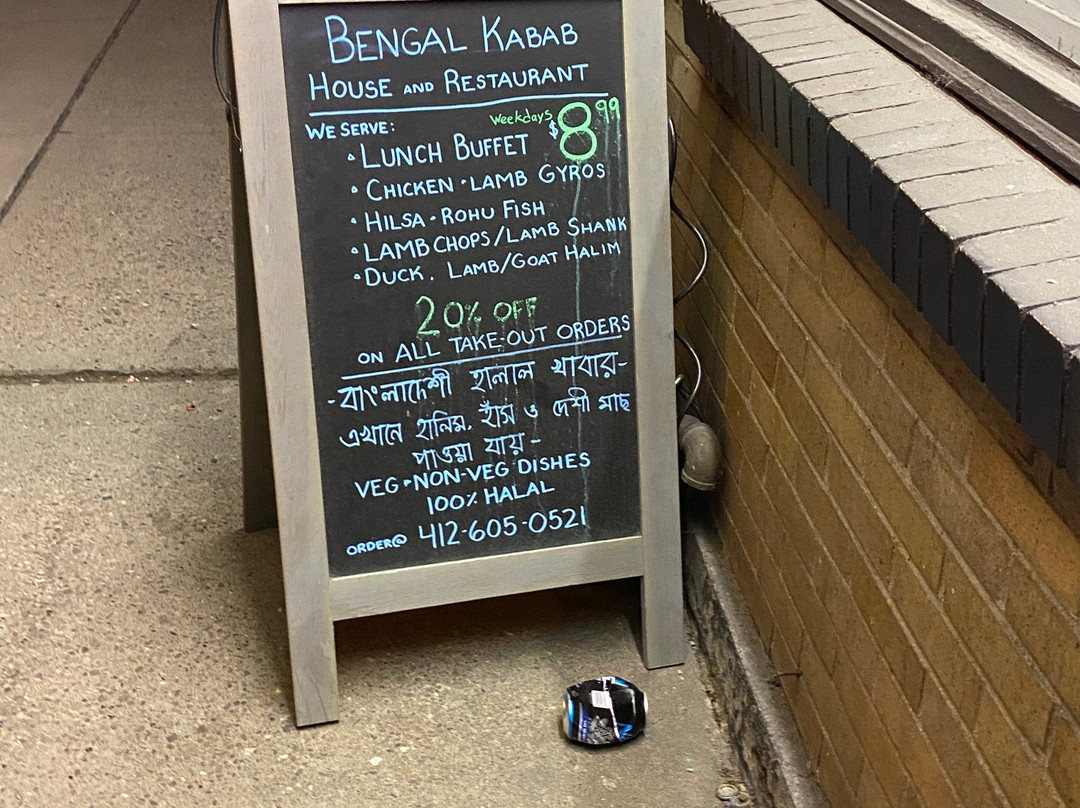 BENGAL KABAB
HOUSE AND RESTAURANT
WE SERVE:
Weekdays $8.99
• LUNCH BUFFET
• CHICKEN • LAMB GYROS
• HILSA • ROHU FISH
• LAMB CHOPS/LAMB SHANK
• DUCK. LAMB/GOAT HALIM
20% OFF
ON ALL TAKE-OUT ORDERS
- বাংলাদেশী হালাল খাবার-
এখানে হালিম, হাঁস ও দেশী মাছ
পাওয়া যায় -
VEG • NON-VEG DISHES
100% HALAL
ORDER@ 412-605-0521